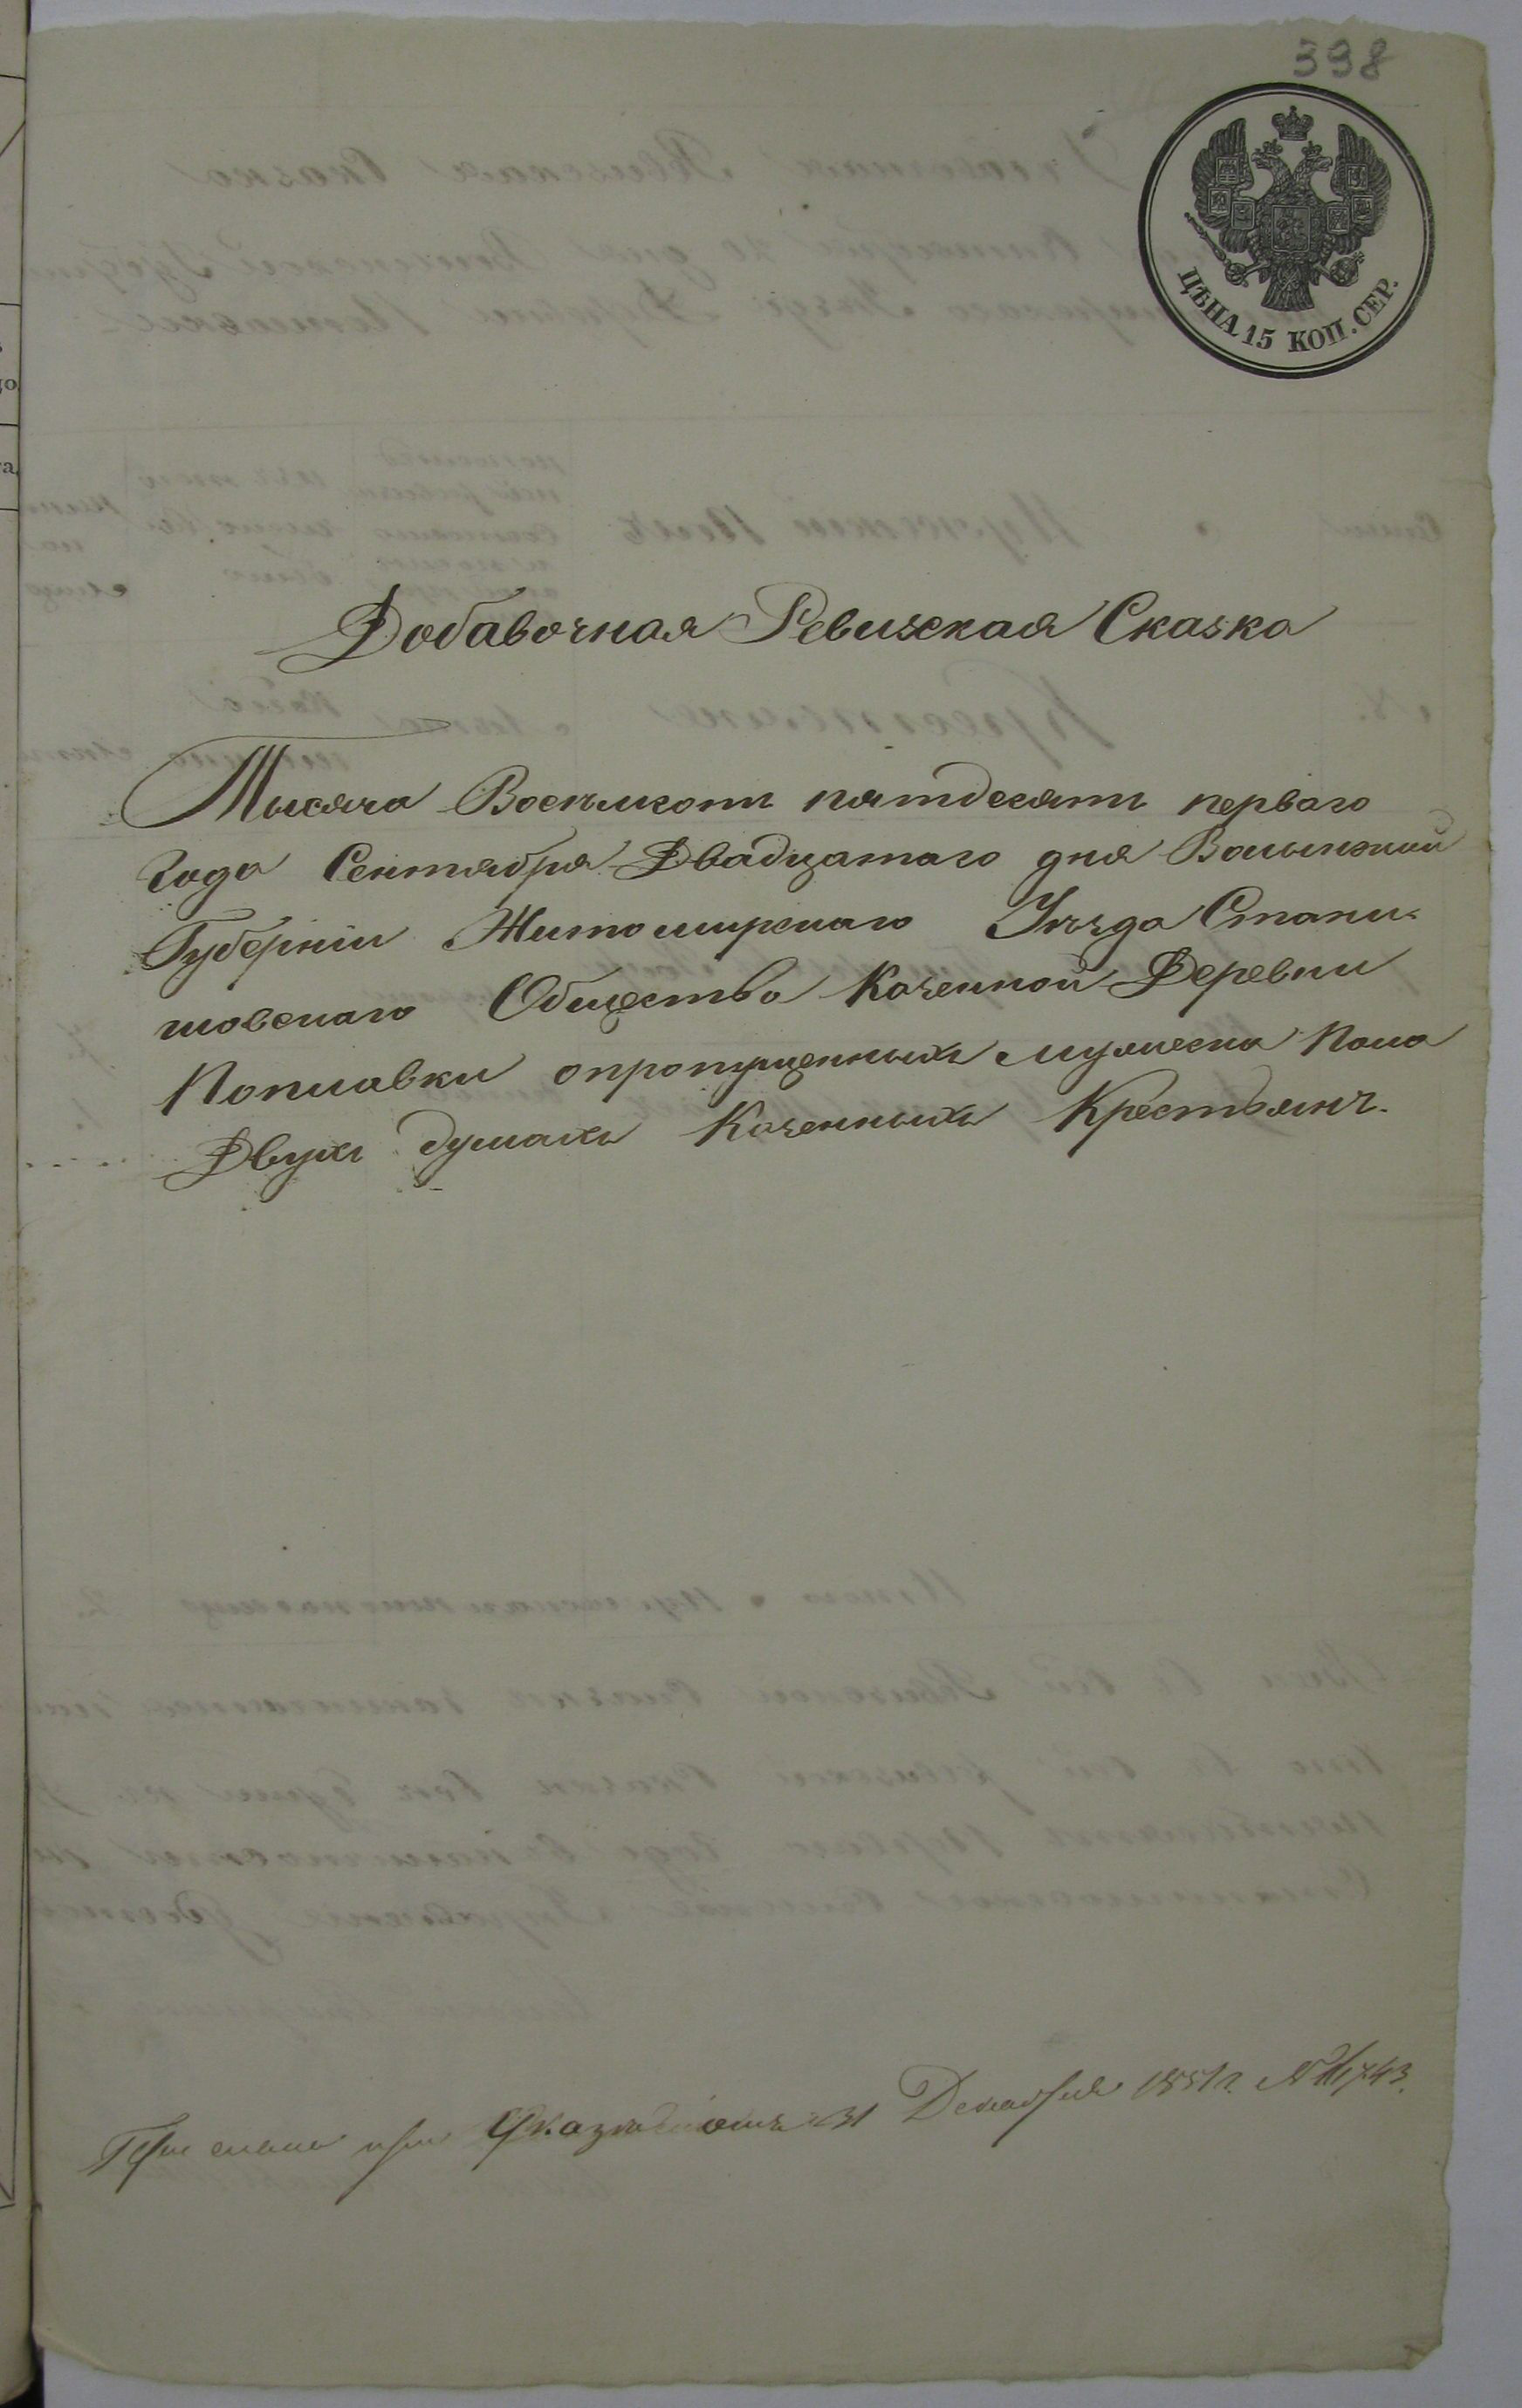 398
ЦѢНА 15 КОП. СЕР.
Добавочная Ревизская Сказка
Тысяча Восемьсотъ пятдесятъ перваго
года Сентября Двадцатаго дня Волынской
Губерніи Житомирскаго Уѣзда Стани-
шовскаго Общества Казенной Деревни
Поплавки опропущенныхъ мужеска Пола
Двухъ душахъ Казенныхъ Крестьянъ.
При 31 Декабря 1851 г. №